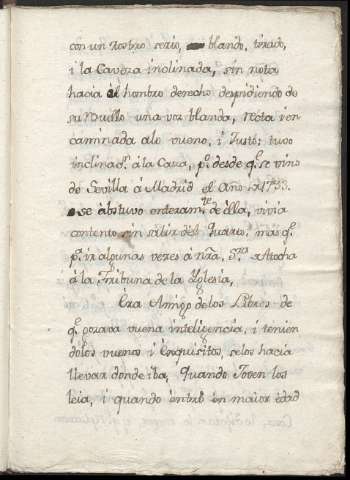 con un rostro serio, blando, terado,
i la Caveza inclinada, sin nota
hacia el hombro derecho despidiendo de
su Muello una voz blanda, Neta i en
caminada alo vueno, i Justo; tuvo
inclinadⁿ. á la Caza, pº. desde qͤ. se vino
de Sevilla á Madrid el Año de 1733.
se abstuvo enteramᵗᵉ. de ella, vivia
contento sin salir del Quarto, mas qͤ.
pª. ir algunas vezes a nrᵃ. Sʳᵃ. de Atocha
á la Tribuna de la Yglesia,
Era Amigo de los Libros de
qͤ. posava vuena inteligencia, i tenien
dolos vuenos i Exquisitos, selos hacia
llevar donde iba, Quando Joven los
leia, i quando entró en maior edad